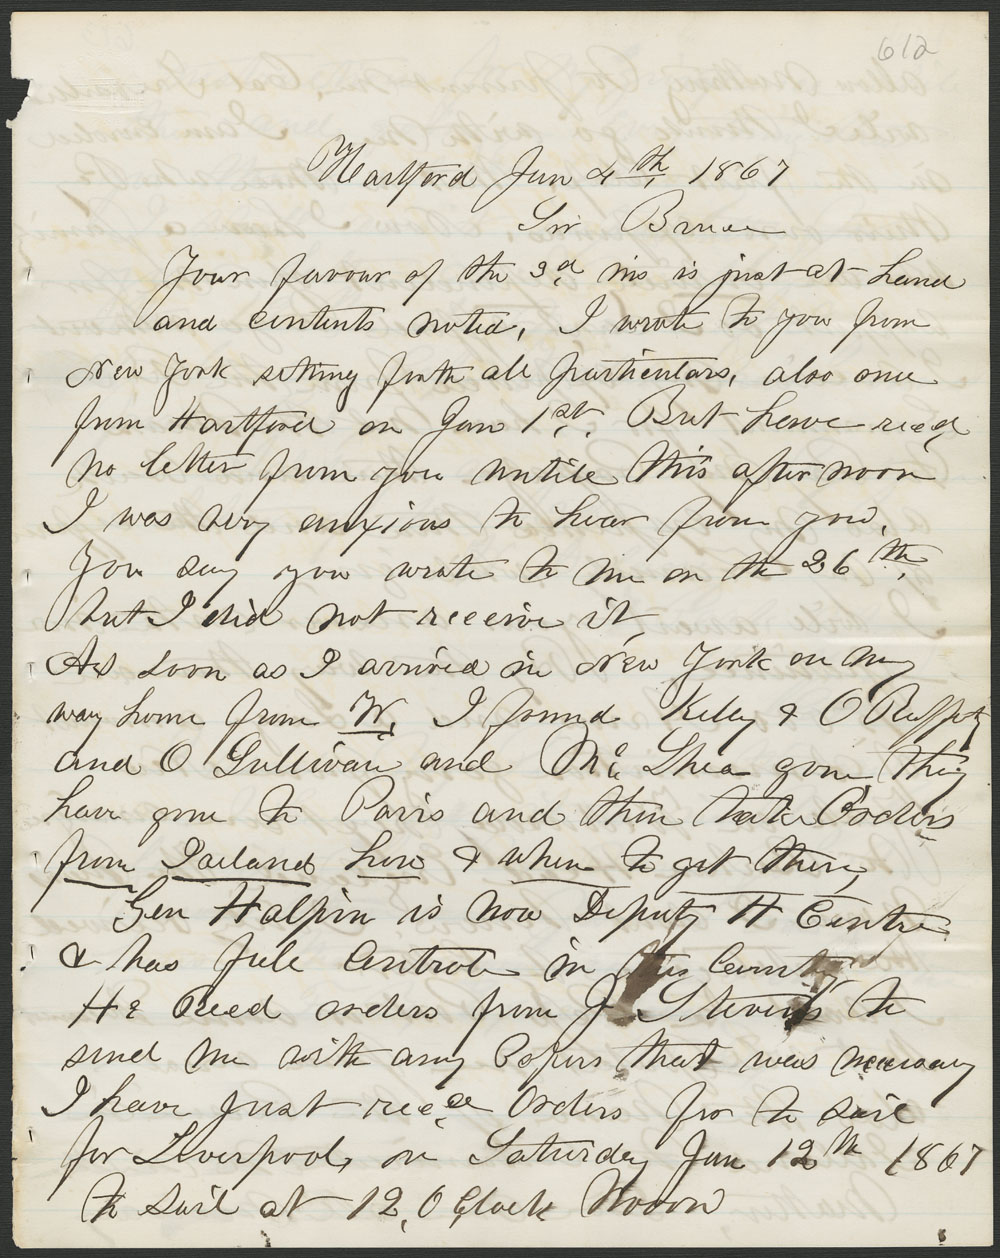 612
Hartford Jan 4th, 1867
Sir Bruce
Your favour of the 3d, ins is just at hand
and contents noted, I wrote to you from
New York setting forth all particulars, also one
from Hartford on Jan 1st. But have recd,
no letter from you untile this afternoon
I was very anxious to hear from you,
You say you wrote to me on the 26th,
but I did not receive it,
As soon as I arrived in New York on my
way home from W, I found Kelly & O
and O Sullivan and Mc Shea gone They
have gone to Paris and then take Orders
from Ireland how & when to get there,
Gen Halpin is now Deputy H Centre
& has full Controle in this Country
He Recd orders from J Stevens to
send me with any Papers that was necessary
I have Just recd Orders for to sail
for Liverpool, on Saturday Jan 12th 1867
To sail at 12, O Clock Nooon